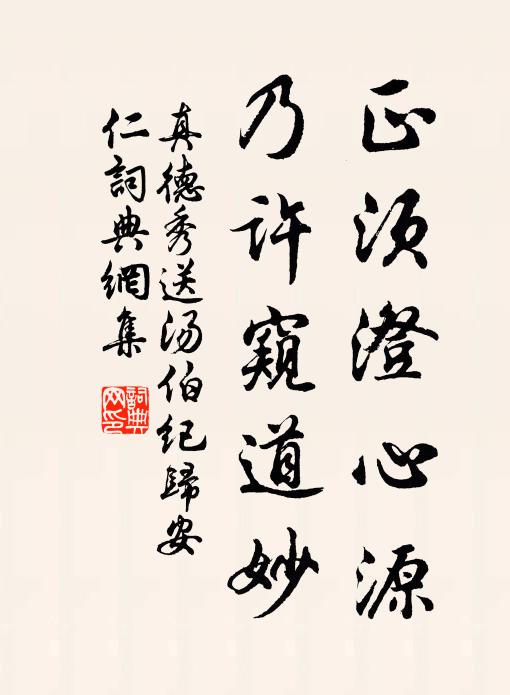 正须澄心源
乃许窥道妙
真德秀送汤伯纪歸安
仁詞典網集
詞典
网印